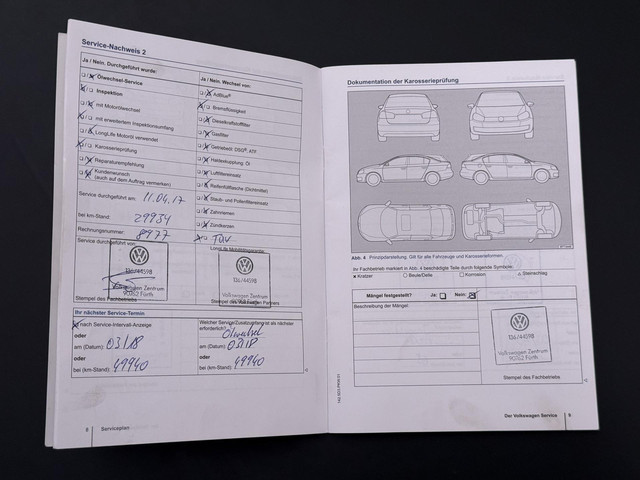 Service-Nachweis 2
Ja / Nein. Durchgeführt wurde:
Ölwechsel-Service
Inspektion
mit Motorölwechsel
mit erweitertem Inspektionsumfang
LongLife Motoröl verwendet
Karosserieprüfung
Reparaturempfehlung
Kundenwunsch
(auch auf dem Auftrag vermerken)
Service durchgeführt am: 11.04.17
bei km-Stand: 29934
Rechnungsnummer: 8977
Service durchgeführt von:
136/44598
Volkswagen Zentrum
90762 Fürth
Stempel des Fachbetriebs
Ja / Nein. Wechsel von:
AdBlue®
Bremsflüssigkeit
Dieselkraftstofffilter
Gasfilter
Getriebeöl: DSG®, ATF
Haldexkupplung: Öl
Luftfiltereinsatz
Reifenfüllflasche (Dichtmittel)
Staub- und Pollenfiltereinsatz
Zahnriemen
Zündkerzen
TÜV
LongLife Mobilitätsgarantie
136/44598
Volkswagen Zentrum
Stempel des Volkswagen Partners
Ihr nächster Service-Termin
nach Service-Intervall-Anzeige
oder
am (Datum): 03/18
oder
bei (km-Stand): 49940
Welcher Service/Zusatzumfang ist als nächster
erforderlich? Ölwechsel
am (Datum): 03/18
oder
bei (km-Stand): 49940
8 Serviceplan
Dokumentation der Karosserieprüfung
Abb. 4 Prinzipdarstellung. Gilt für alle Fahrzeuge und Karosserieformen.
Ihr Fachbetrieb markiert in Abb. 4 beschädigte Teile durch folgende Symbole:
x Kratzer ○ Beule/Delle □ Korrosion △ Steinschlag
Mängel festgestellt? Ja: Nein:
Beschreibung der Mängel:
136/44598
Volkswagen Zentrum
90762 Fürth
Stempel des Fachbetriebs
Der Volkswagen Service 9